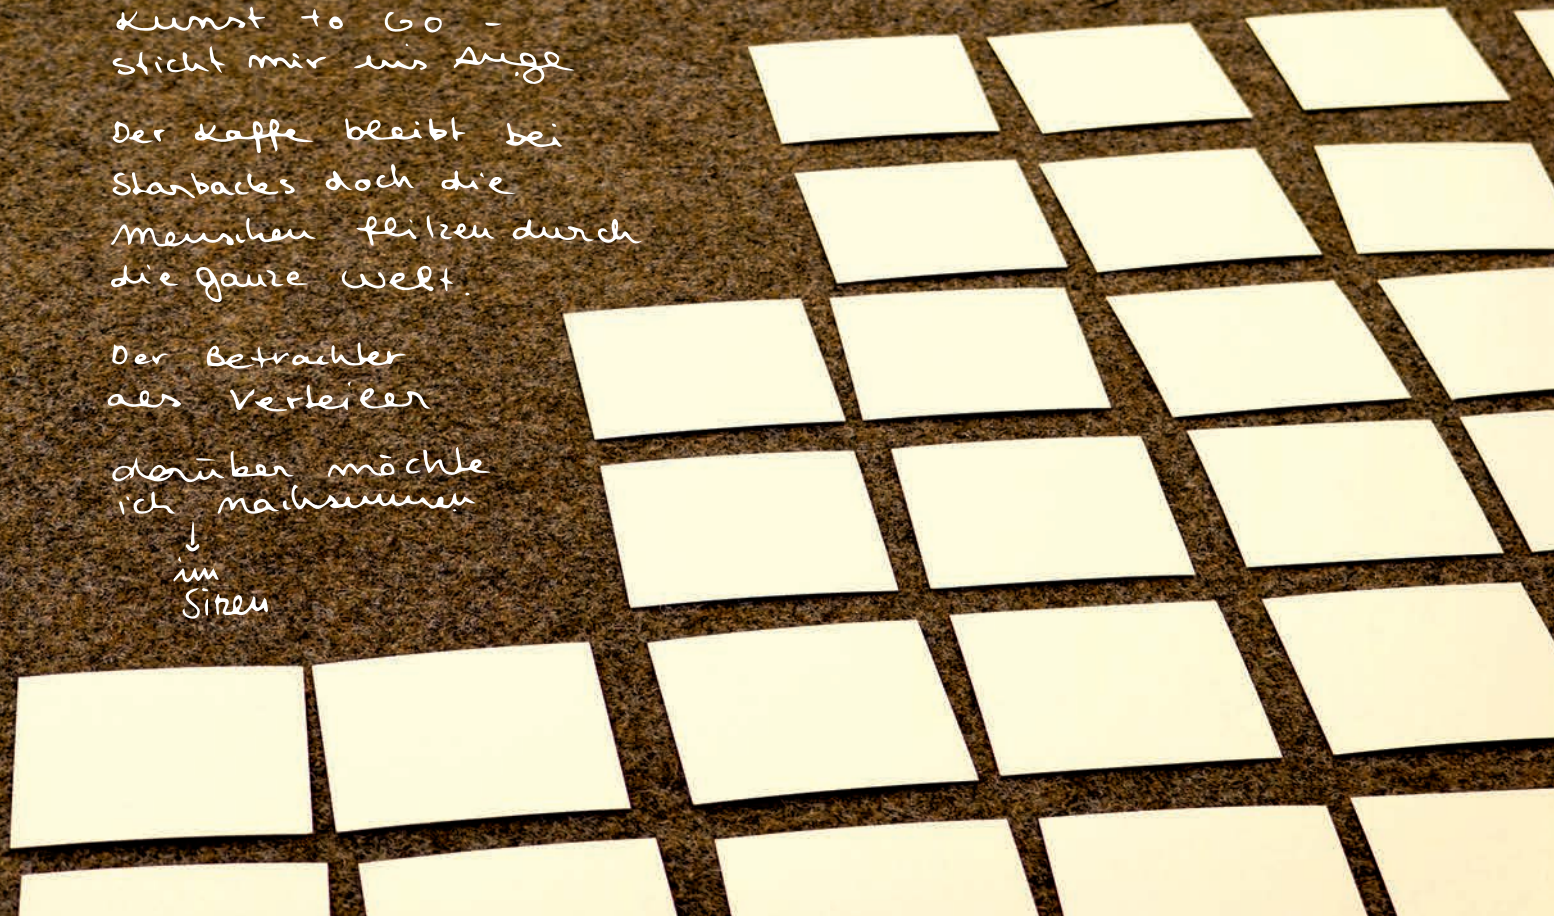 Kunst to Go -
sticht mir ins Auge
Der Kaffe bleibt bei
Starbacks doch die
Menschen flitzen durch
die ganze Welt.
Der Betrachter
als Verteiler
darüber möchte
ich nachsinnen
↓
im
Sitzen